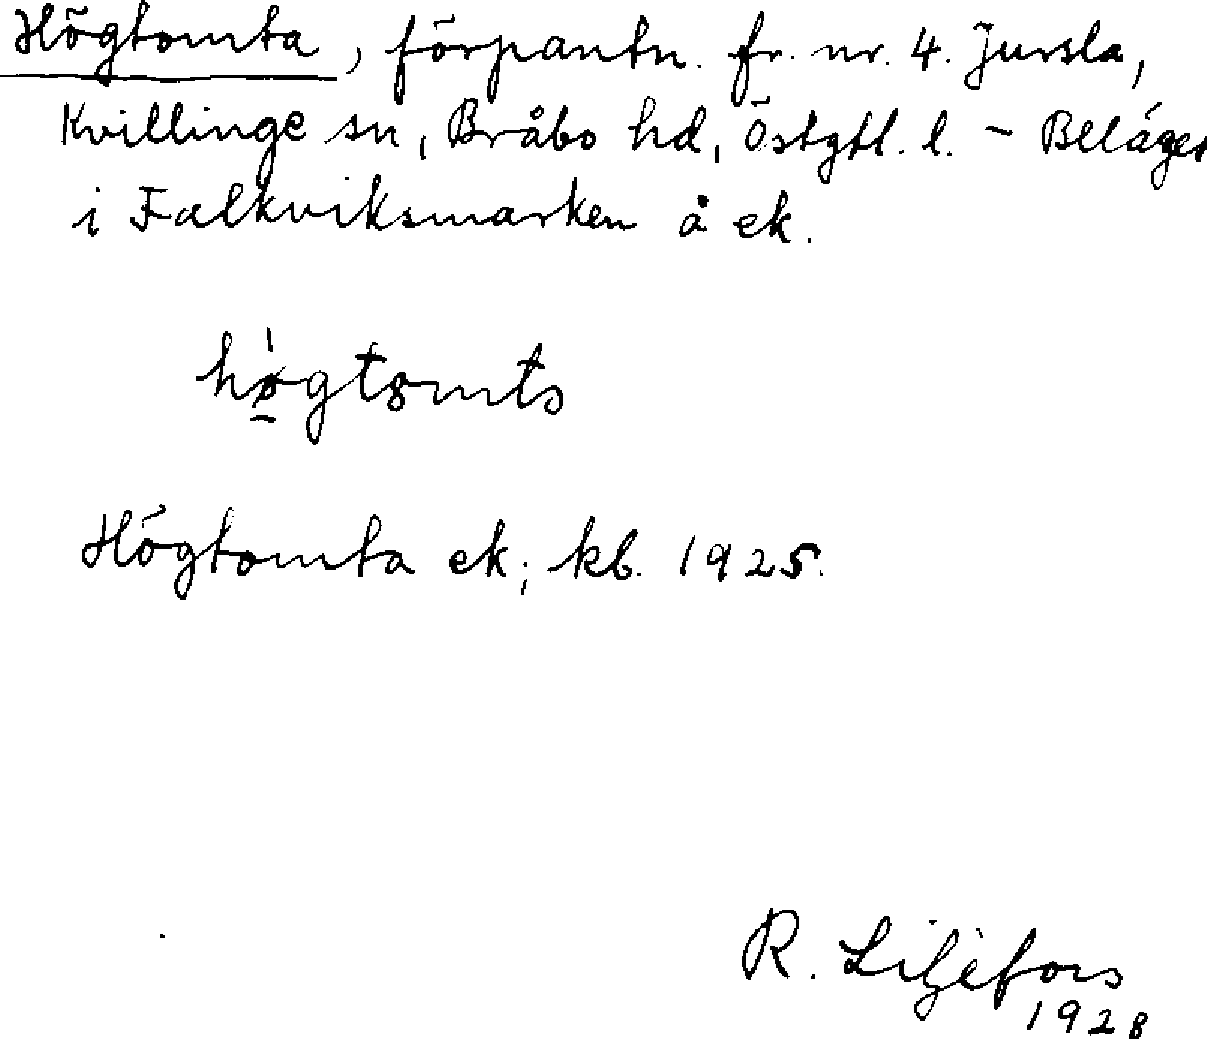 Högtomta, förpantn. fr. nr. 4. Jursla,
Kvillinge sn, Bråbo hd, Östgtl. l. - Beläget
i Falkviksmarken å ek.
Högtomta ek; kb. 1925.
R. Liljefors
1928